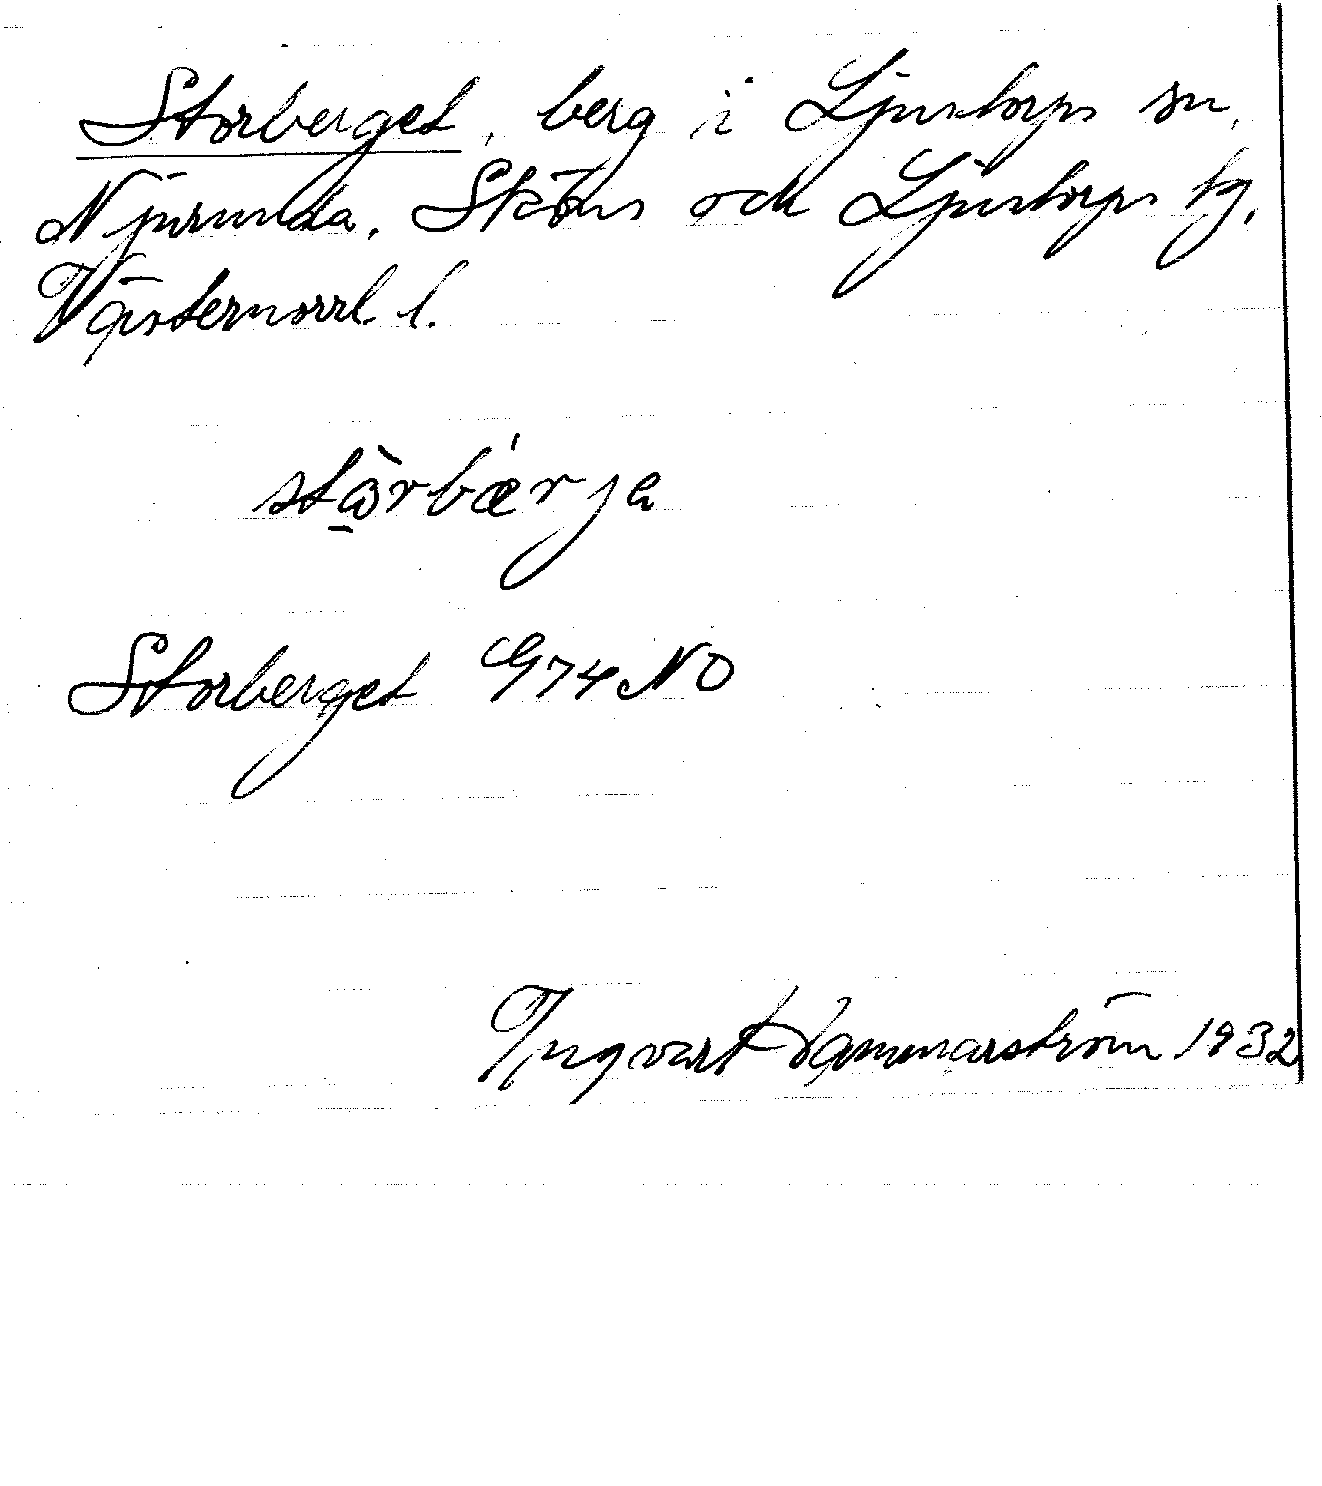 Storberget, berg i Ljustorps sn,
Njurunda, Sköns och Ljustorps tg,
Västernorrl. l.
stɷ̠̀rbæ̀rja
Storberget G74 NO
Yngvart Hammarström 1932